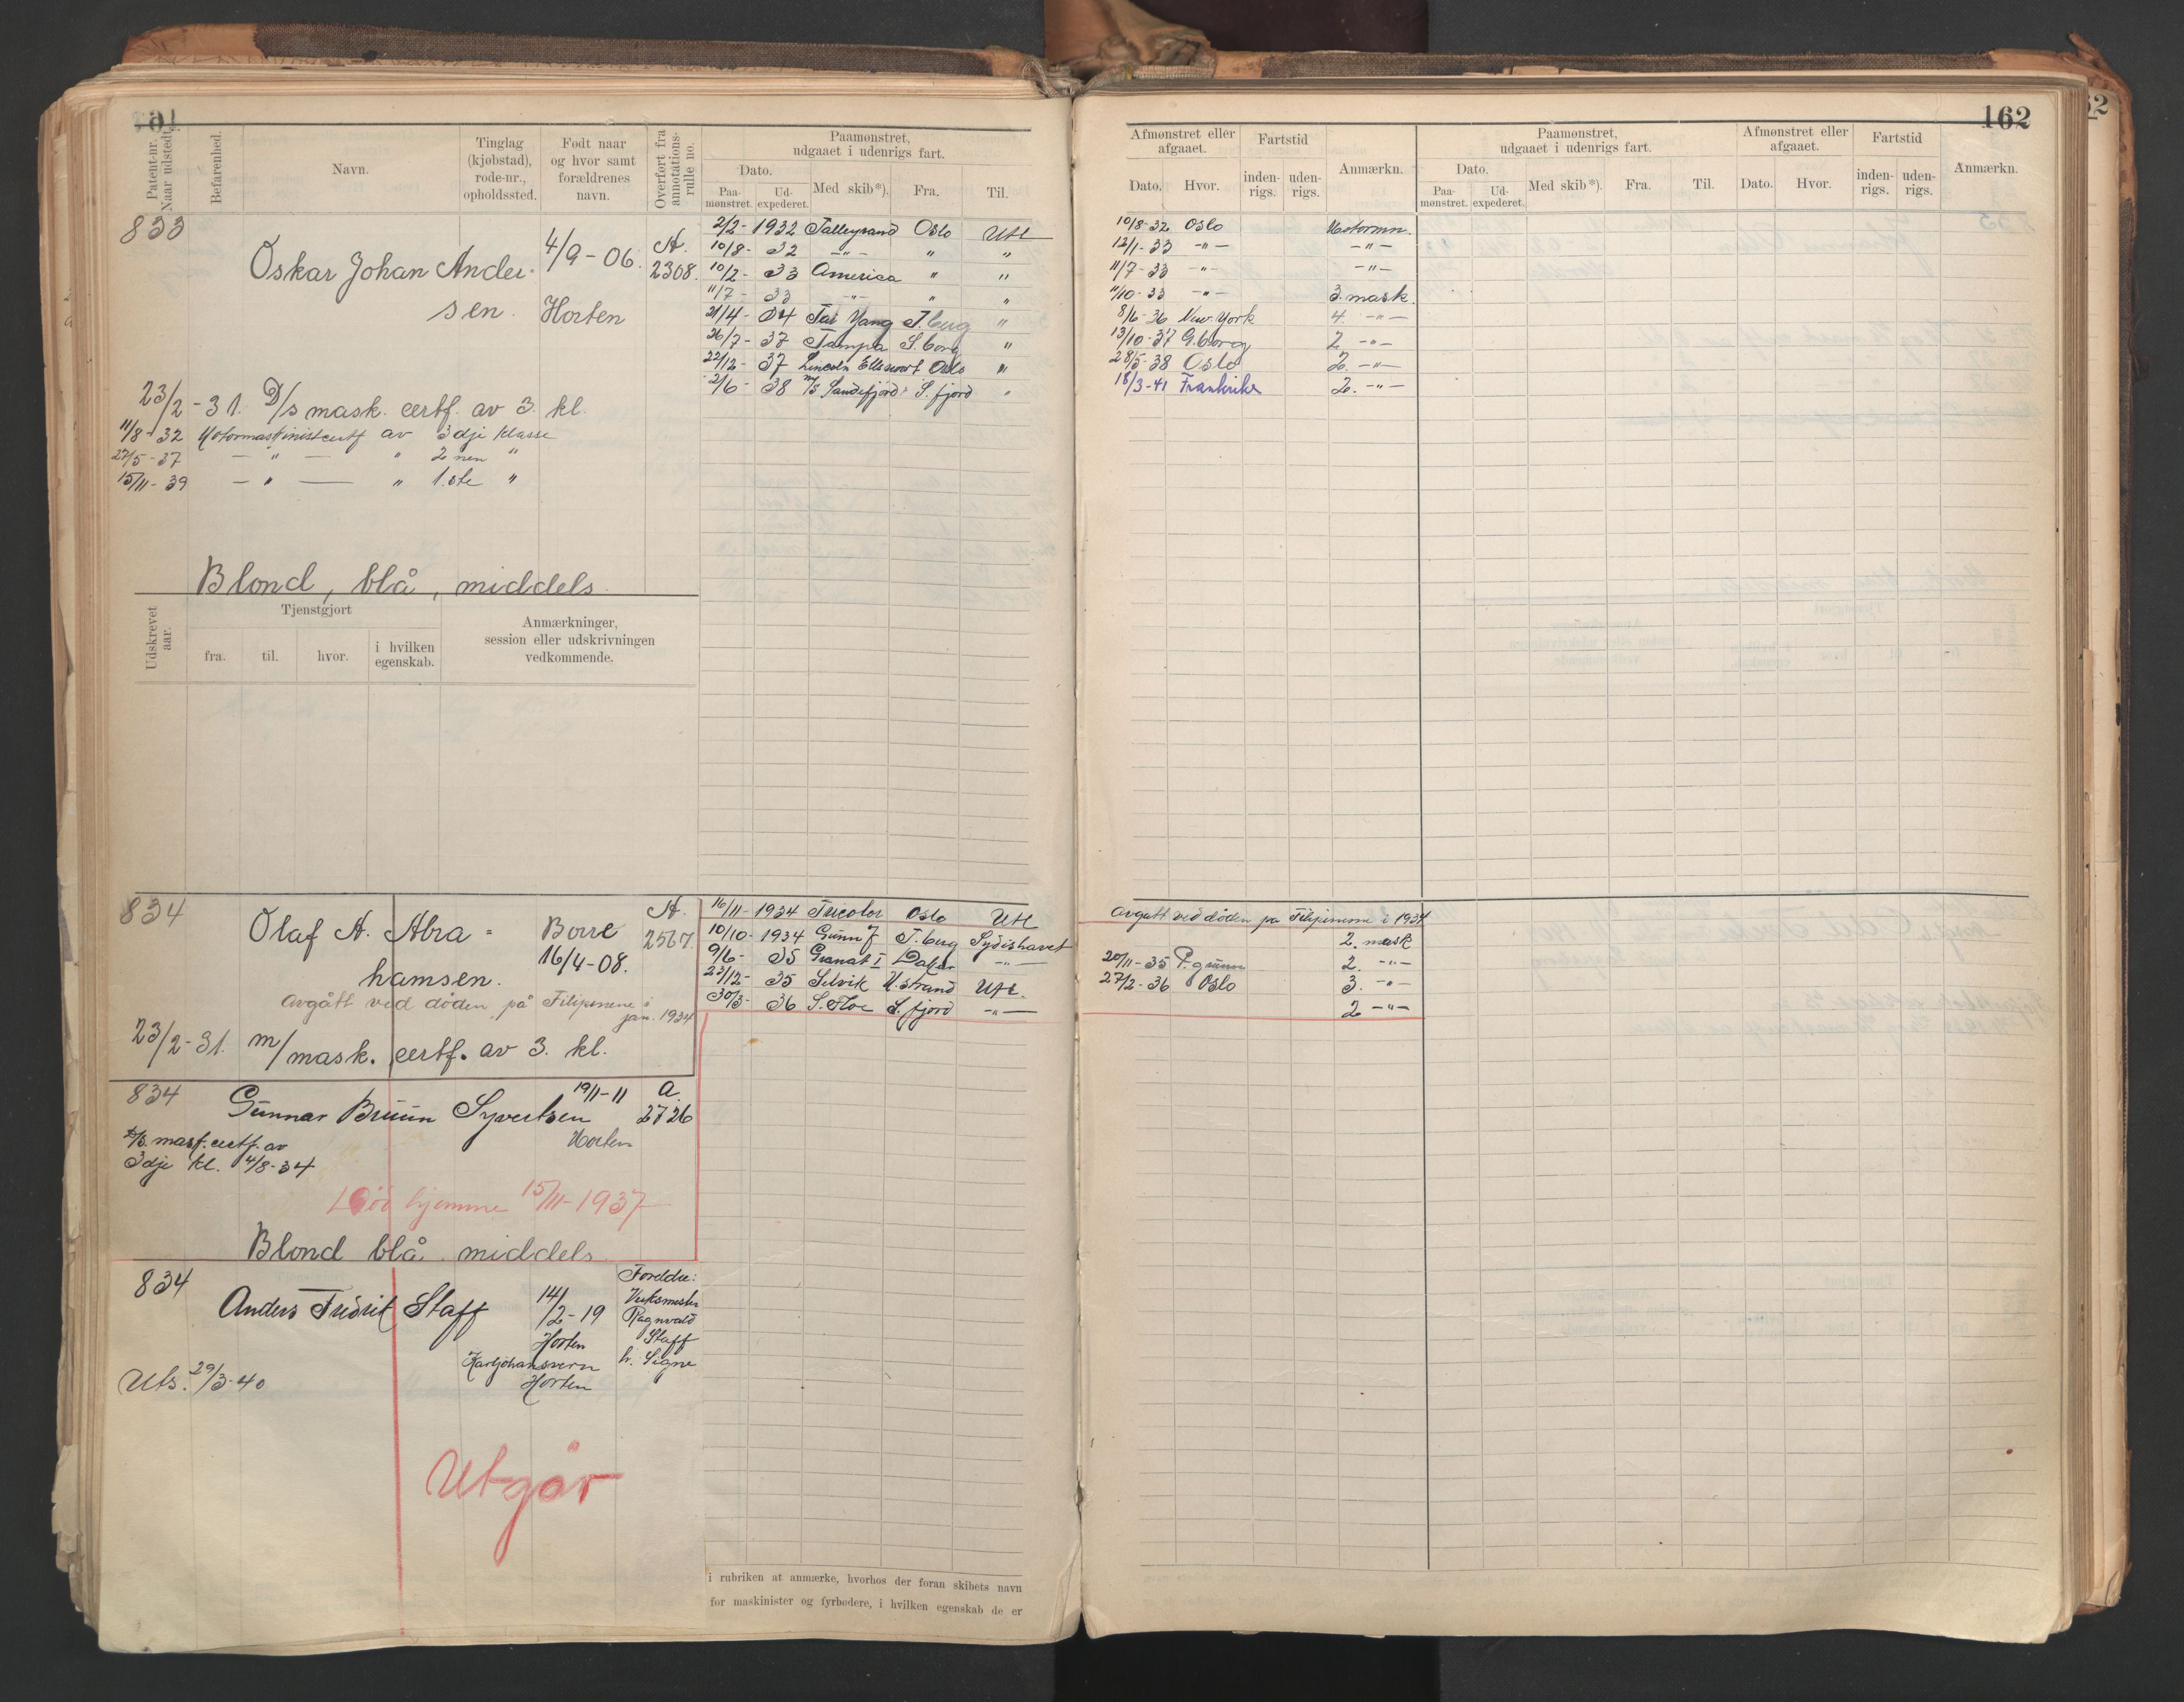 162
Patent-nr. Naar udstedt.
Befarenhed.
Navn.
Tinglag (kjøbstad), rode-nr., opholdssted.
Født naar og hvor samt forældrenes navn.
Overført fra annotations-rulle no.
Paamønstret, udgaaet i udenrigs fart.
Dato.
Paa-mønstret. Ud-expederet. Med skib*). Fra. Til.
833
Oskar Johan Ander-
sen.
4/9-06.
Horten
A.
2308.
2/2- 1932 Talleyrand Oslo Utl
10/8- 32 -"- " "
10/2- 33 America " "
11/7- 33 -"- " "
21/4- 34 Tai Yang T.berg "
26/7- 37 Tampa G.borg "
22/12- 37 Lincoln Ellswort Oslo "
2/6- 38 m/s Sandefjord S.fjord "
23/2-31. D/s mask. certf. av 3. kl.
11/8-32 Motormaskinistcertf av 3dje klasse
27/5-37 -"- " 2nen "
15/11-39 -"- " 1.ste "
Blond, blå, middels.
Udskrevet aar.
Tjenstgjort
fra. til. hvor. i hvilken egenskab.
Anmærkninger, session eller udskrivningen vedkommende.
834
Olaf A. Abra-
hamsen.
Borre
16/4-08.
A.
2567.
Avgått ved døden på Filipinene i
jan. 1934
23/2-31. m/mask. certf. av 3. kl.
16/11- 1934 Tricolor Oslo Utl
10/10- 1934 Gunn J T.berg Sydishavet
9/6- 35 Granat I Dakar -"-
23/12- 35 Selvik U.strand Utl.
30/3- 36 S.fjord -"-
834
Gunnar Bruun Syvertsen
19/1-11
Horten
A.
2726
D/S. mask. certf. av
3dje kl. 4/8-34
Død hjemme 15/11-1937
Blond blå middels
834
Anders Fridrik Staff
14/2-19
Horten
Karljohansvern
Horten
Foreldre:
Verksmester
Ragnvald
Staff
h. Signe
Uts. 29/3-40
Utgår
i rubriken at anmærke, hvorhos der foran skibets navn
for maskinister og fyrbødere, i hvilken egenskab de er
Afmønstret eller afgaaet.
Dato. Hvor.
Fartstid
inden-rigs. uden-rigs.
Anmærkn.
Paamønstret, udgaaet i udenrigs fart.
Dato.
Paa-mønstret. Ud-expederet. Med skib*). Fra. Til.
Afmønstret eller afgaaet.
Dato. Hvor.
Fartstid
inden-rigs. uden-rigs.
Anmærkn.
10/8-32 Oslo Motormn.
12/1-33 -"- -"-
11/7-33 -"- -"-
11/10-33 -"- 3. mask.
8/6-36 New York 4. -"-
13/10-37 G.borg 2 -"-
28/5-38 Oslo 2. -"-
18/3-41 Frankrike 2. -"-
Avgått ved døden pa Filipinerne i 1934
2. mask
20/11-35 P.grunn 2. -"-
27/2-36 Oslo 3. -"-
2 -"-